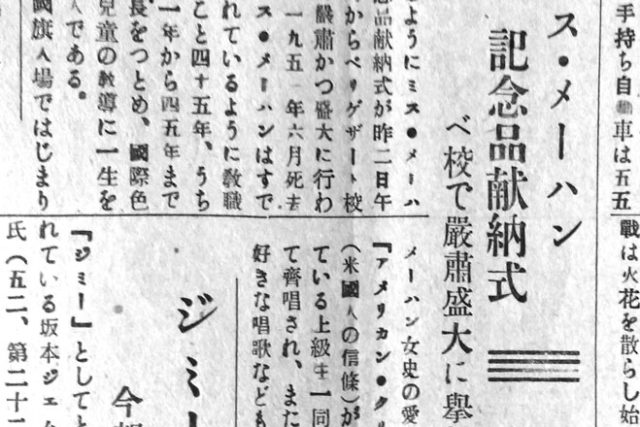 手持ち自動車は五五
戰は火花を散らし始
ス・メーハン
記念品献納式
べ校で嚴肅盛大に擧
ようにミス・メーハ
念品献納式が昨二日午
からベリゲザート校
嚴肅かつ盛大に行わ
一九五一年六月死去
ス・メーハンはすで
れているように敎職
こと四十五年、うち
一年から四五年まで
長をつとめ、國際色
兒童の敎導に一生を
人である。
國旗入場ではじまり
メーハン女史の愛
『アメリカン・クリ
(米國人の信條)が
ている上級生一同
て齊唱され、また
好きな唱歌なども
ジミー
今
『ジミー』としてと
れている坂本ジェム
氏(五二、第二十二